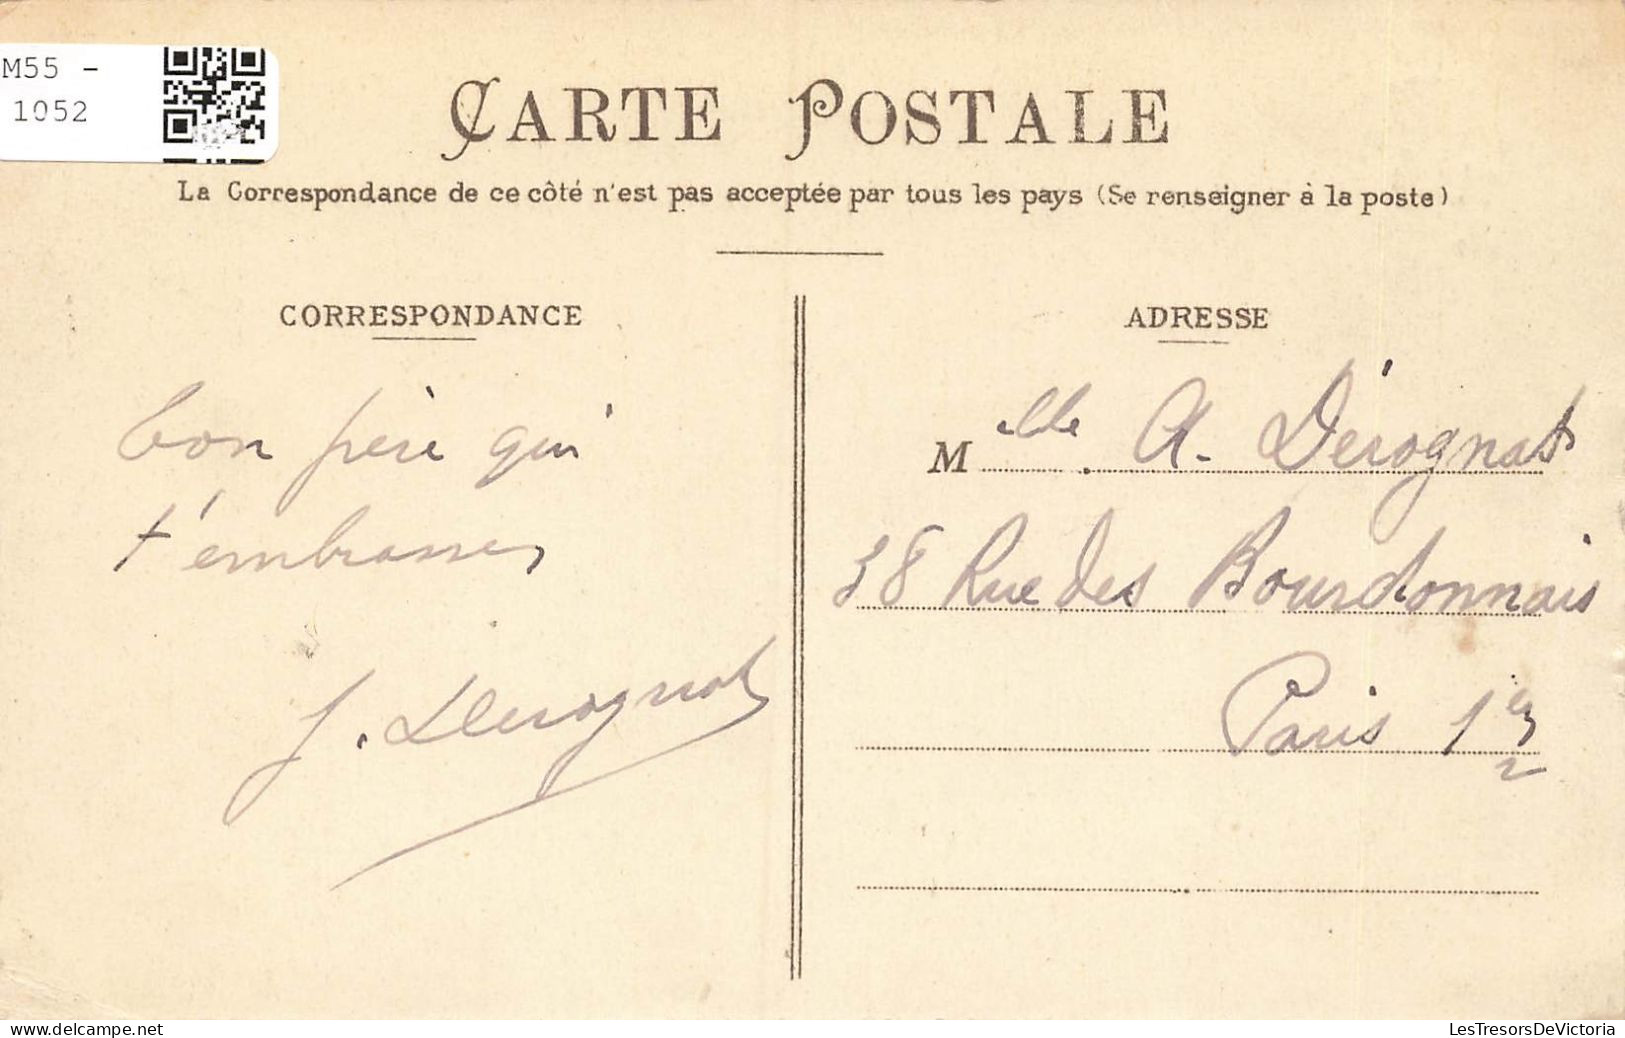 M55 -
1052
CARTE POSTALE
La Correspondance de ce côté n'est pas acceptée par tous les pays (Se renseigner à la poste)
CORRESPONDANCE
ton père qui
t'embrasse,
J. Derognat
ADRESSE
Melle A. Dérognat
38 Rue des Bourdonnais
Paris 1er
delcampe.net
LesTresorsDeVictoria